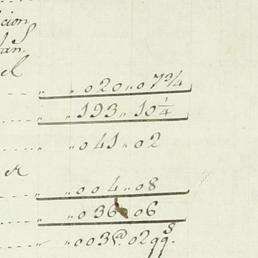 cion
el
" 020 " 07 3/4
" 193 " 10 1/4
" 041 " 02
" 004 " 08
" 036 " 06
" 003 @ 02 qq s.